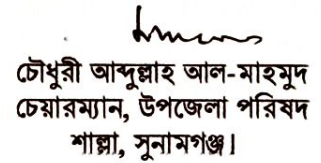 চৌধুরী আব্দুল্লাহ আল-মাহমুদ
চেয়ারম্যান, উপজেলা পরিষদ
শাল্লা, সুনামগঞ্জ।